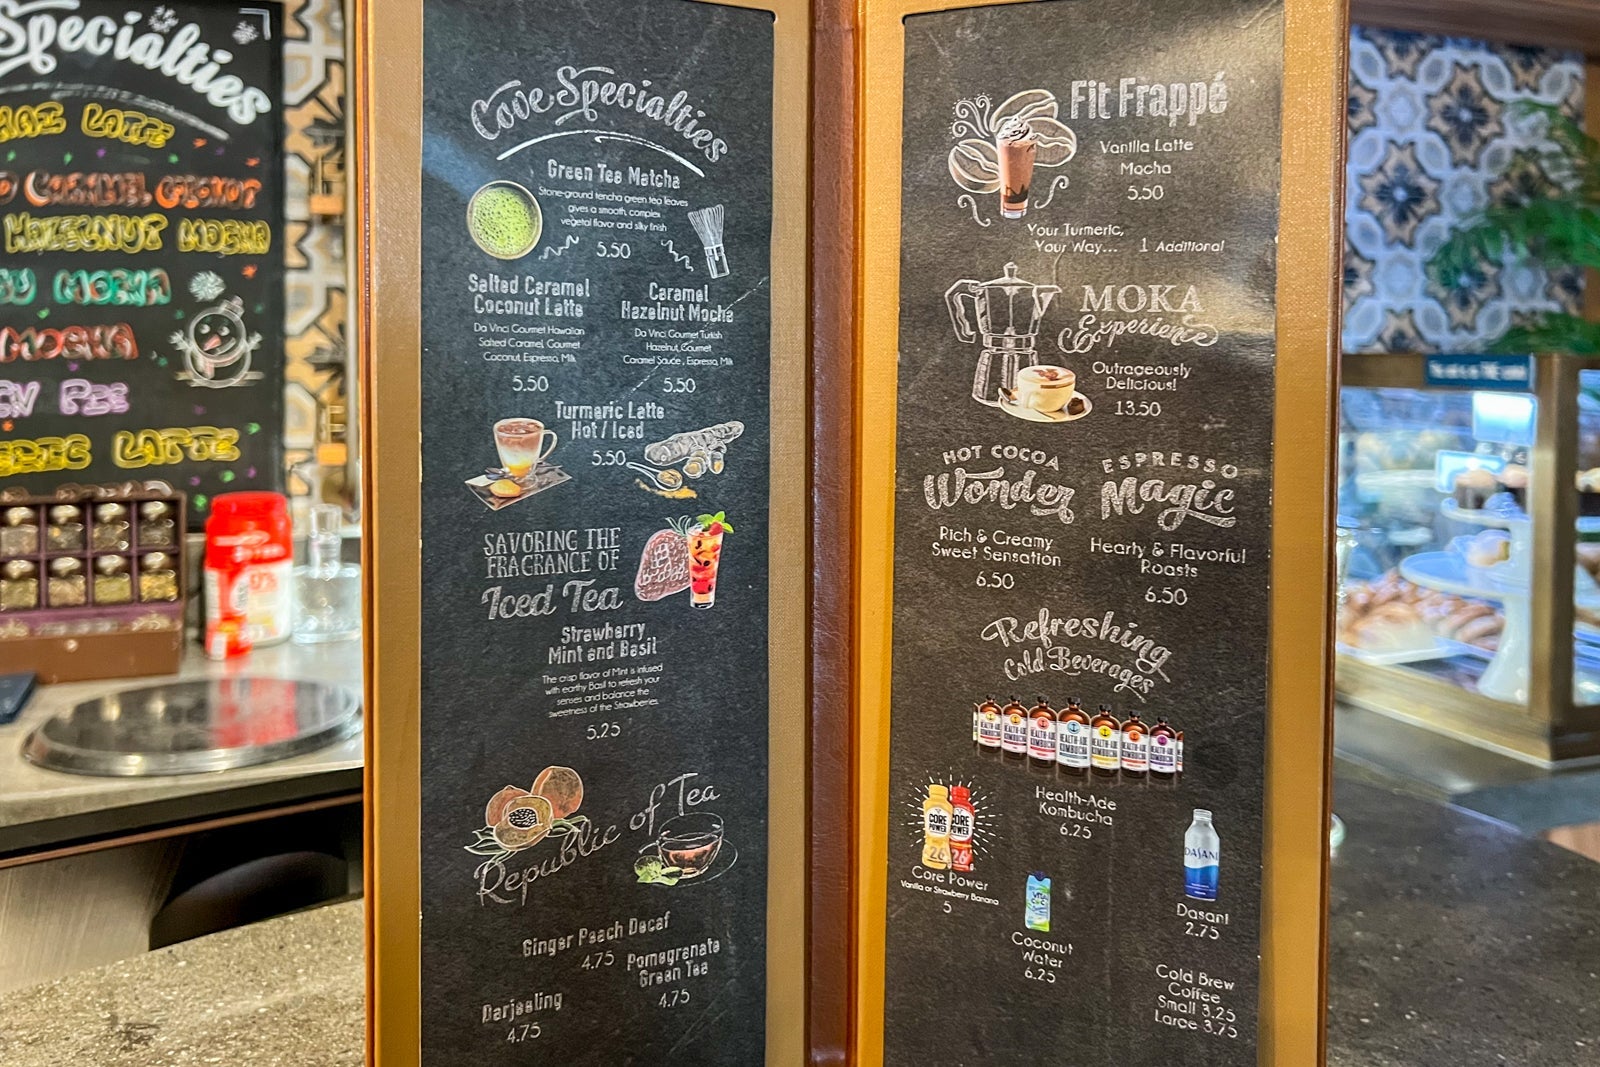 Specialties
LATTE
CARAMEL COCONUT
HAZELNUT MOCHA
MOCHA
MOCHA
PIE
LATTE
Cove Specialties
Green Tea Matcha
Stone-ground tencha green tea leaves
gives a smooth, complex
vegetal flavor and silky finish
5.50
Salted Caramel
Coconut Latte
Da Vinci Gourmet Hawaiian
Salted Caramel, Gourmet
Coconut, Espresso, Milk
5.50
Caramel
Hazelnut Mocha
Da Vinci Gourmet Turkish
Hazelnut, Gourmet
Caramel Sauce, Espresso, Milk
5.50
Turmeric Latte
Hot / Iced
5.50
SAVORING THE
FRAGRANCE OF
Iced Tea
Strawberry
Mint and Basil
The crisp flavor of Mint is infused
with earthy Basil to refresh your
senses and balance the
sweetness of the Strawberries.
5.25
Republic of Tea
Ginger Peach Decaf
4.75
Pomegranate
Green Tea
4.75
Darjeeling
4.75
Fit Frappé
Vanilla Latte
Mocha
5.50
Your Turmeric,
Your Way... 1 Additional
MOKA
Experience
Outrageously
Delicious!
13.50
HOT COCOA
Wonder
Rich & Creamy
Sweet Sensation
6.50
ESPRESSO
Magic
Hearty & Flavorful
Roasts
6.50
Refreshing
Cold Beverages
HEALTH-ADE
KOMBUCHA
Health-Ade
Kombucha
6.25
CORE
POWER
26
CORE
POWER
26
Core Power
Vanilla or Strawberry Banana
5
Coconut
Water
6.25
DASANI
Dasani
2.75
Cold Brew
Coffee
Small 3.25
Large 3.75